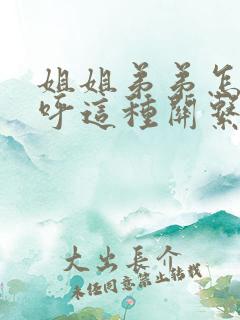 姐姐弟弟怎
呼這種關繫
大出長介
未经同意禁止转载